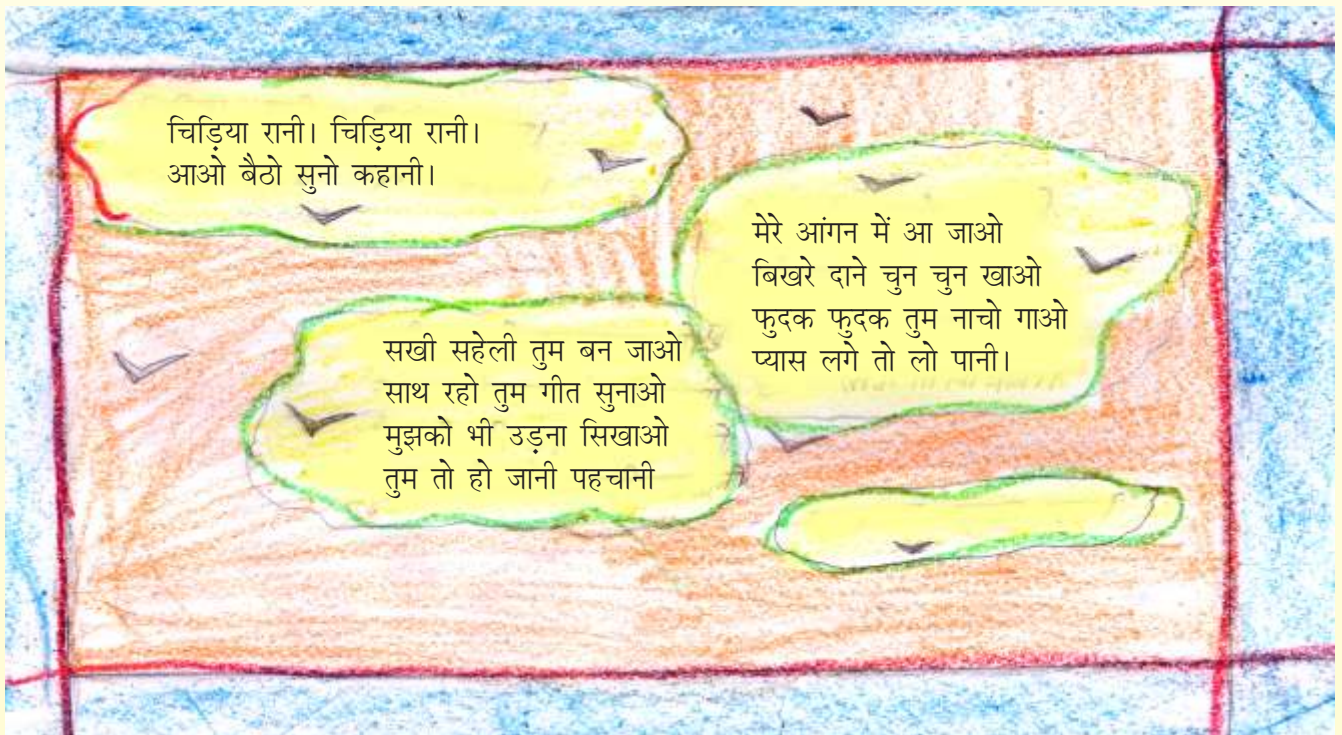 चिड़िया रानी। चिड़िया रानी।
आओ बैठो सुनो कहानी।
मेरे आंगन में आ जाओ
बिखरे दाने चुन चुन खाओ
फुदक फुदक तुम नाचो गाओ
प्यास लगे तो लो पानी।
सखी सहेली तुम बन जाओ
साथ रहो तुम गीत सुनाओ
मुझको भी उड़ना सिखाओ
तुम तो हो जानी पहचानी